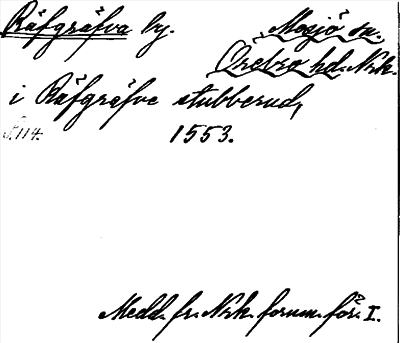 Räfgräfva by. Mosjö sn.
Örebro hd. Nrk.
i Räfgräfve stubberud,
S. 114. 1553.
Medd. fr. Nrk. fornm. för. I.